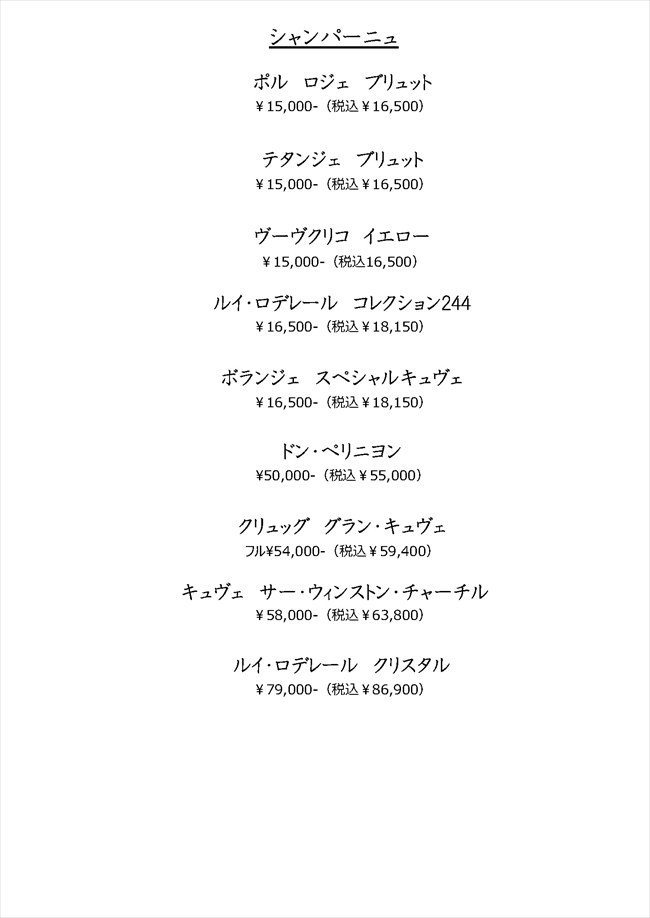 シャンパーニュ
ポル　ロジェ　ブリュット
￥15,000-（税込￥16,500）
テタンジェ　ブリュット
￥15,000-（税込￥16,500）
ヴーヴクリコ　イエロー
￥15,000-（税込16,500）
ルイ・ロデレール　コレクション244
￥16,500-（税込￥18,150）
ボランジェ　スペシャルキュヴェ
￥16,500-（税込￥18,150）
ドン・ペリニヨン
¥50,000-（税込￥55,000）
クリュッグ　グラン・キュヴェ
フル¥54,000-（税込￥59,400）
キュヴェ　サー・ウィンストン・チャーチル
￥58,000-（税込￥63,800）
ルイ・ロデレール　クリスタル
￥79,000-（税込￥86,900）